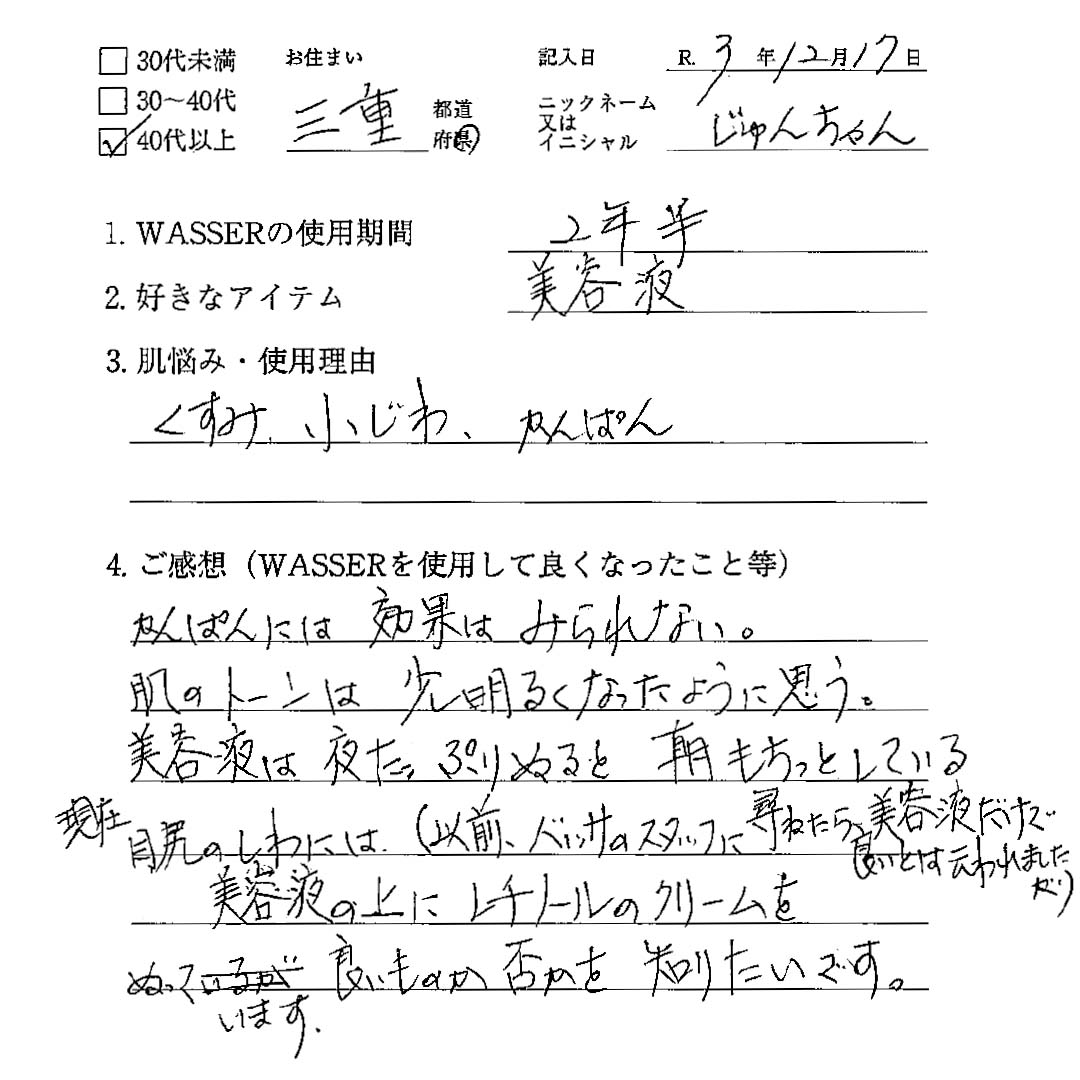 30代未満 お住まい 記入日 R. 3年12月17日
30～40代 三重 都道府県 ニックネーム又はイニシャル じゅんちゃん
40代以上
1. WASSERの使用期間 2年半
2. 好きなアイテム 美容液
3. 肌悩み・使用理由
くすみ、小じわ、かんぱん
4. ご感想（WASSERを使用して良くなったこと等）
かんぱんには効果はみられない。
肌のトーンは少し明るくなったように思う。
美容液は夜たっぷりぬると朝もちっとしている
現在目尻のしわには、(以前、バッサのスタッフに尋ねたら、美容液だけで
良いとは云われましたが)
美容液の上にレチノールのクリームを
ぬっているが 良いものか否かを知りたいです。
います。